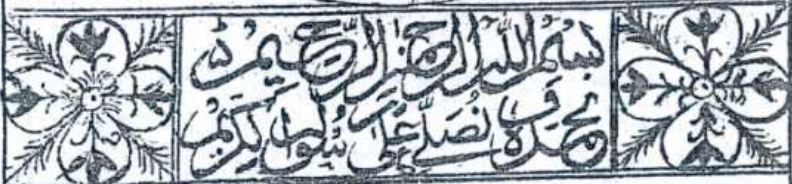 بسم اللہ الرحمن الرحیم
نحمدہ و نصلے علیٰ رسولہ الکریم